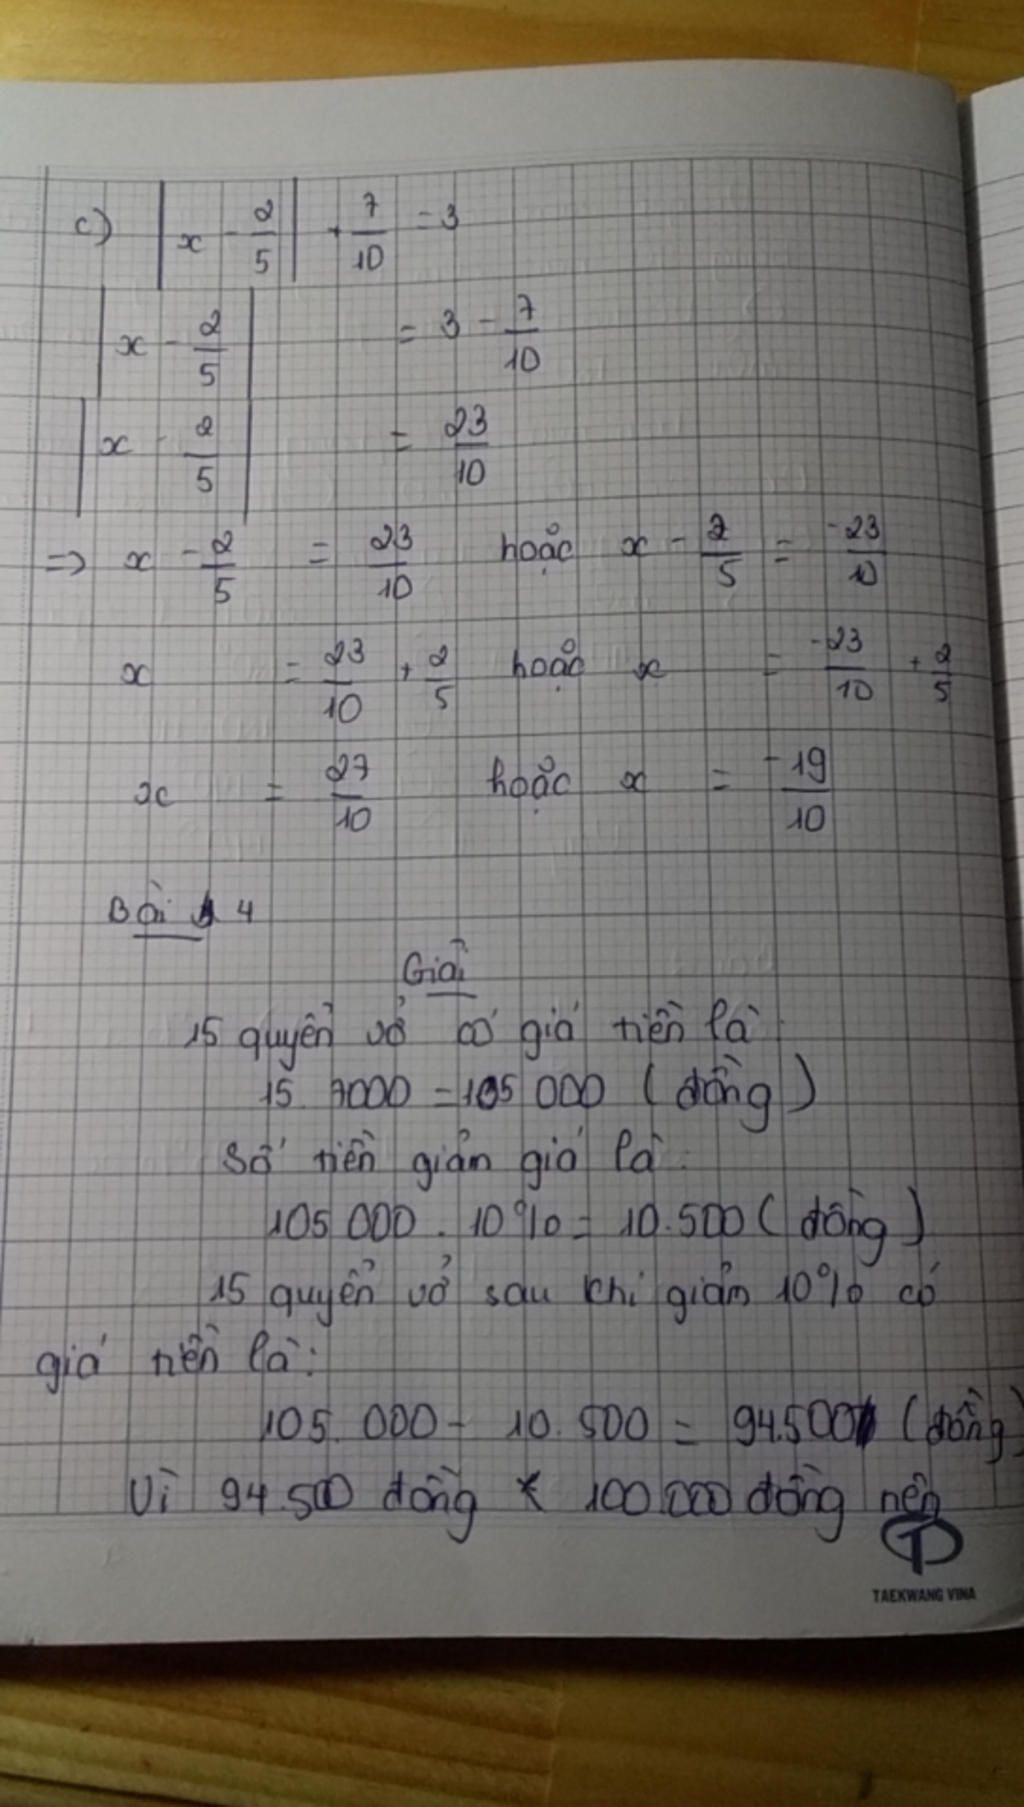 c) |x - 2/5| + 7/10 = 3
|x - 2/5| = 3 - 7/10
|x - 2/5| = 23/10
=> x - 2/5 = 23/10 hoặc x - 2/5 = -23/10
x = 23/10 + 2/5 hoặc x = -23/10 + 2/5
x = 27/10 hoặc x = -19/10
Bài 4
Giải
15 quyển vở có giá tiền là:
15. 7000 = 105 000 (đồng)
Số tiền giảm giá là:
105 000. 10% = 10.500 (đồng)
15 quyển vở sau khi giảm 10% có
giá tiền là:
105. 000 - 10. 500 = 94.500 (đồng)
Vì 94.500 đồng < 100.000 đồng nên
TAEKWANG VINA